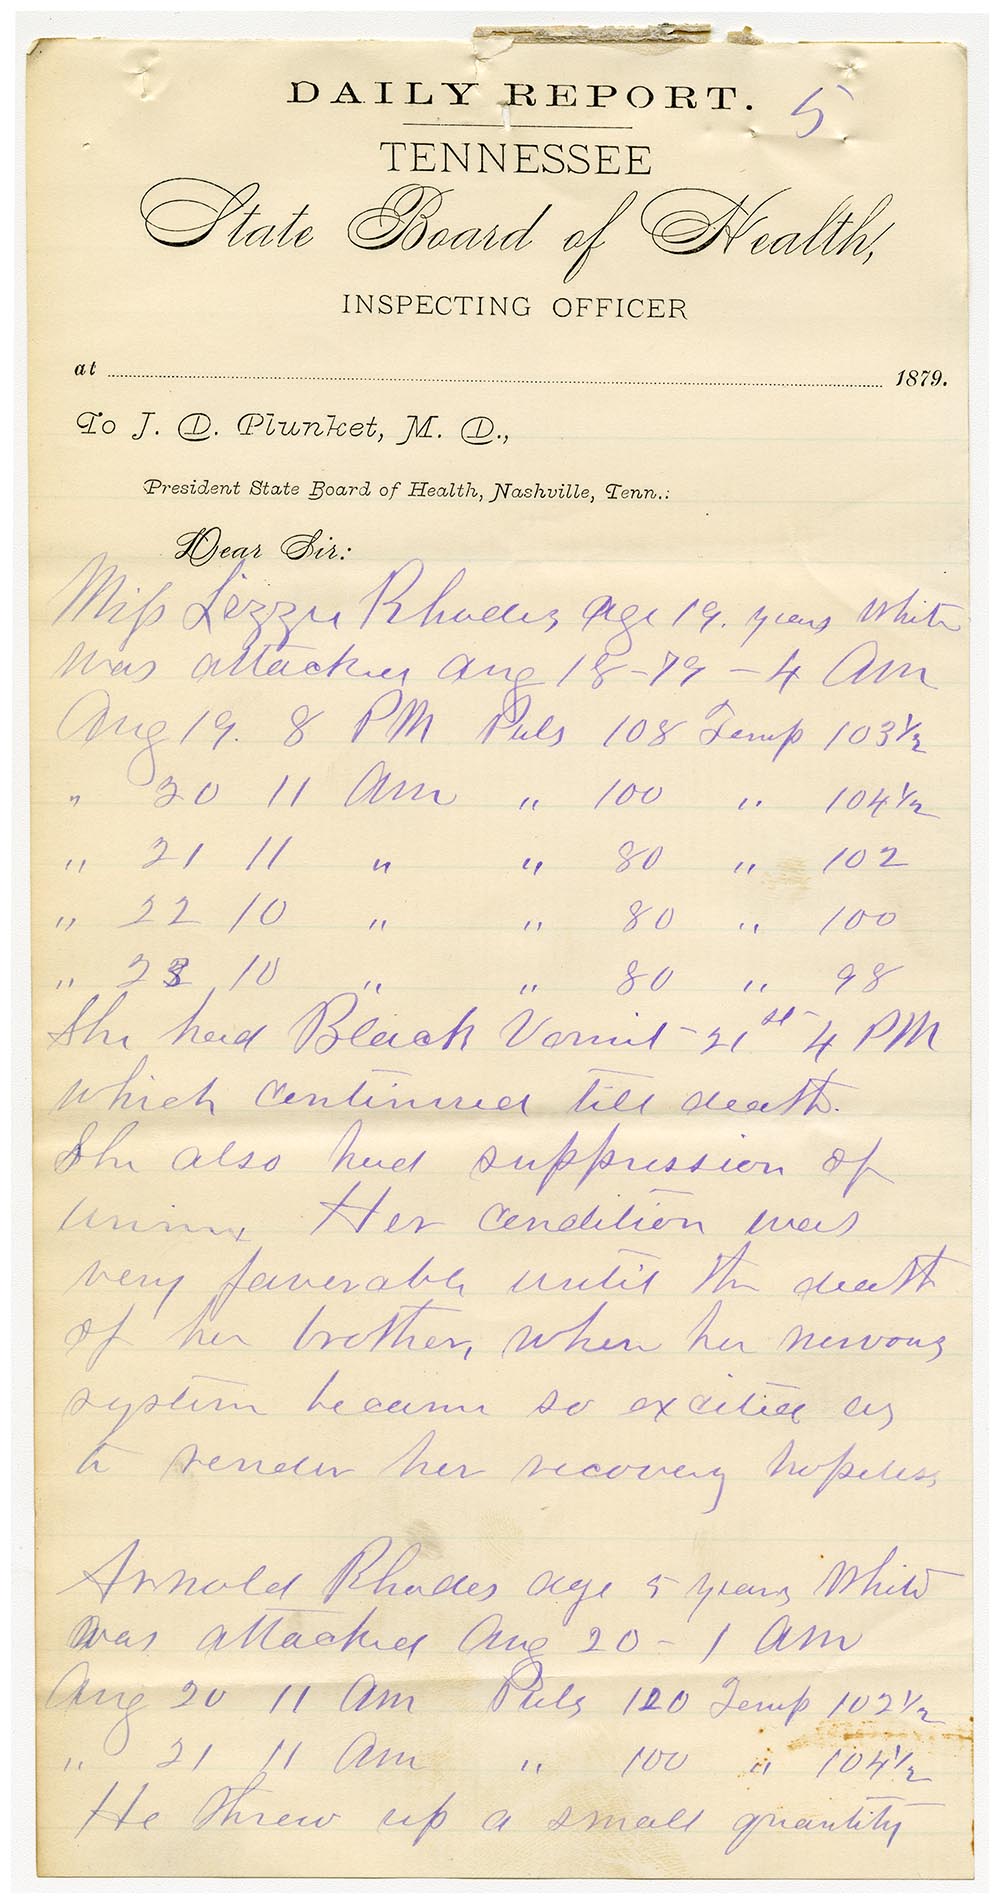 DAILY REPORT. 5
TENNESSEE
State Board of Health,
INSPECTING OFFICER
at 1879.
To J. D. Plunket, M. D.,
President State Board of Health, Nashville, Tenn.:
Dear Sir:
Miss Lizzie Rhodes, age 19. years White
was attacked Aug 18-79 - 4 Am
Aug 19. 8 PM Puls 108 Temp 103½
" 20 11 Am " 100 " 104½
" 21 11 " " 80 " 102
" 22 10 " " 80 " 100
" 23 10 " " 80 " 98
She had Black Vomit - 21st - 4 PM
which continued till death.
She also had suppression of
urine. Her condition was
very favorable until the death
of her brother, when her nervous
system became so excited as
to render her recovery hopeless
Arnold Rhodes age 5 years White
was attacked Aug 20 - 1 Am
Aug 20 11 Am Puls 120 Temp 102½
" 21 11 Am " 100 " 104½
He threw up a small quantity